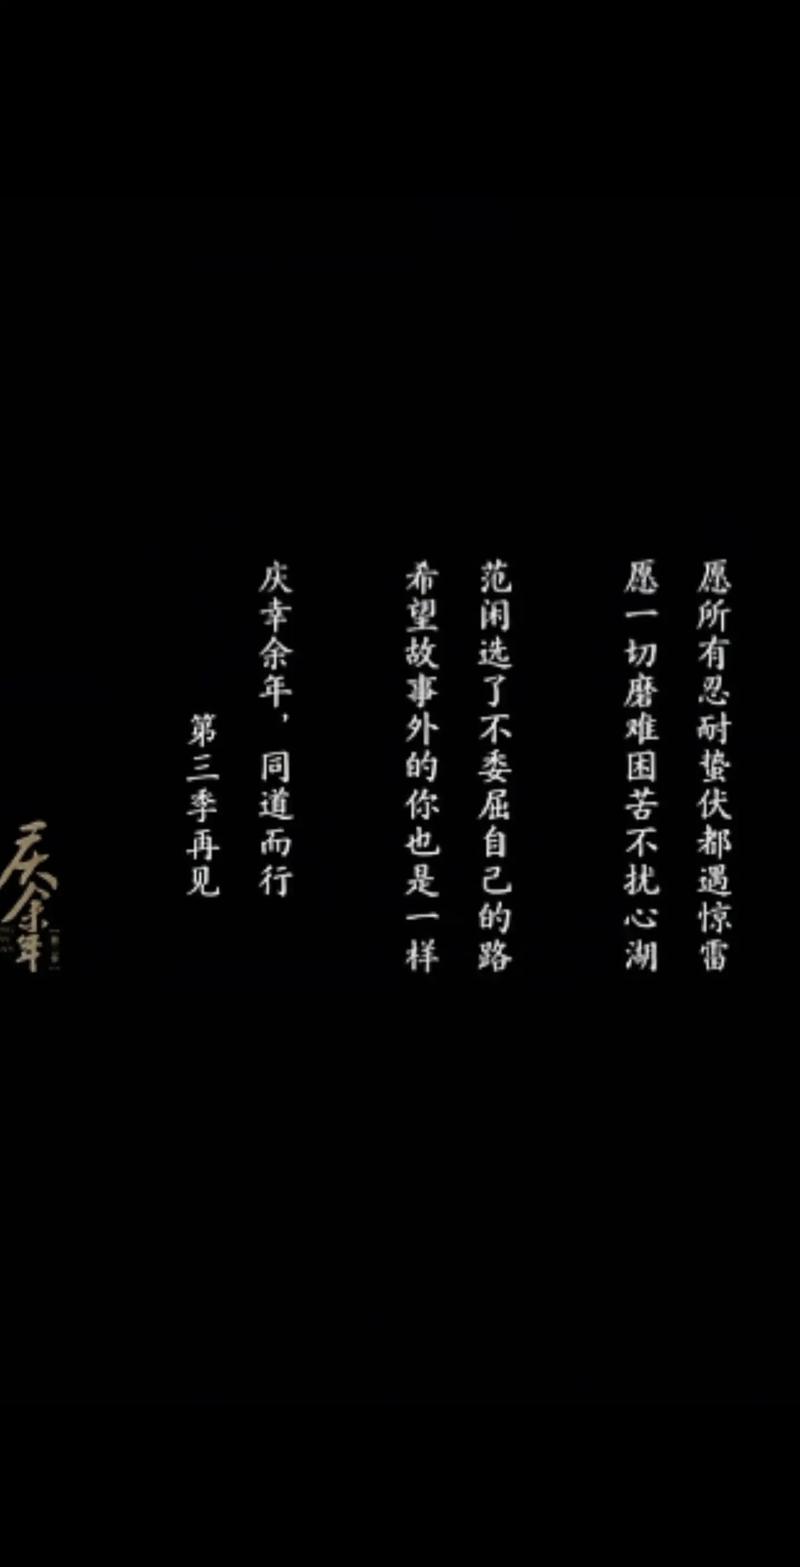 愿所有忍耐蛰伏都遇惊雷
愿一切磨难困苦不扰心湖
范闲选了不委屈自己的路
希望故事外的你也是一样
庆幸余年，同道而行
第三季再见
庆余年